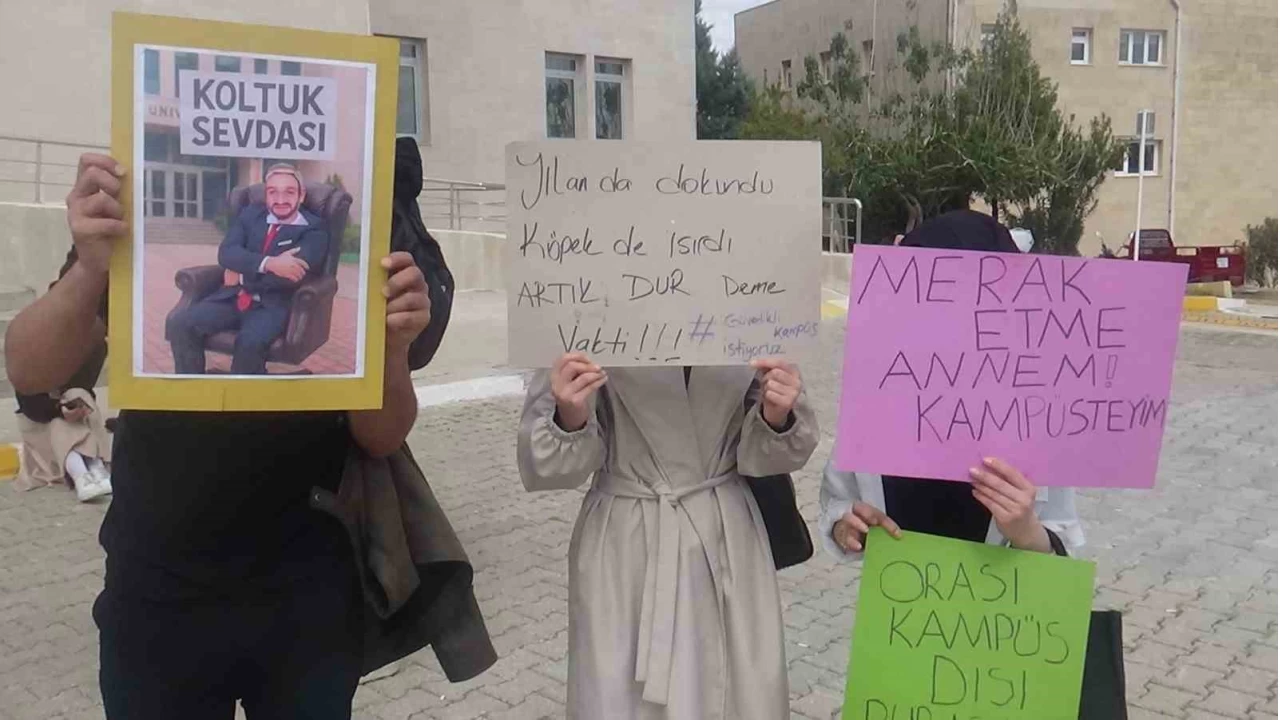 KOLTUK
SEVDASI
UNİV
Yılan da dokundu
Köpek de ısırdı
ARTIK DUR Deme
Vakti!!!
# Güvenlikli
kampüs
istiyoruz
MERAK
ETME
ANNEM!
KAMPÜSTEYİM
ORASI
KAMPÜS
DIŞI